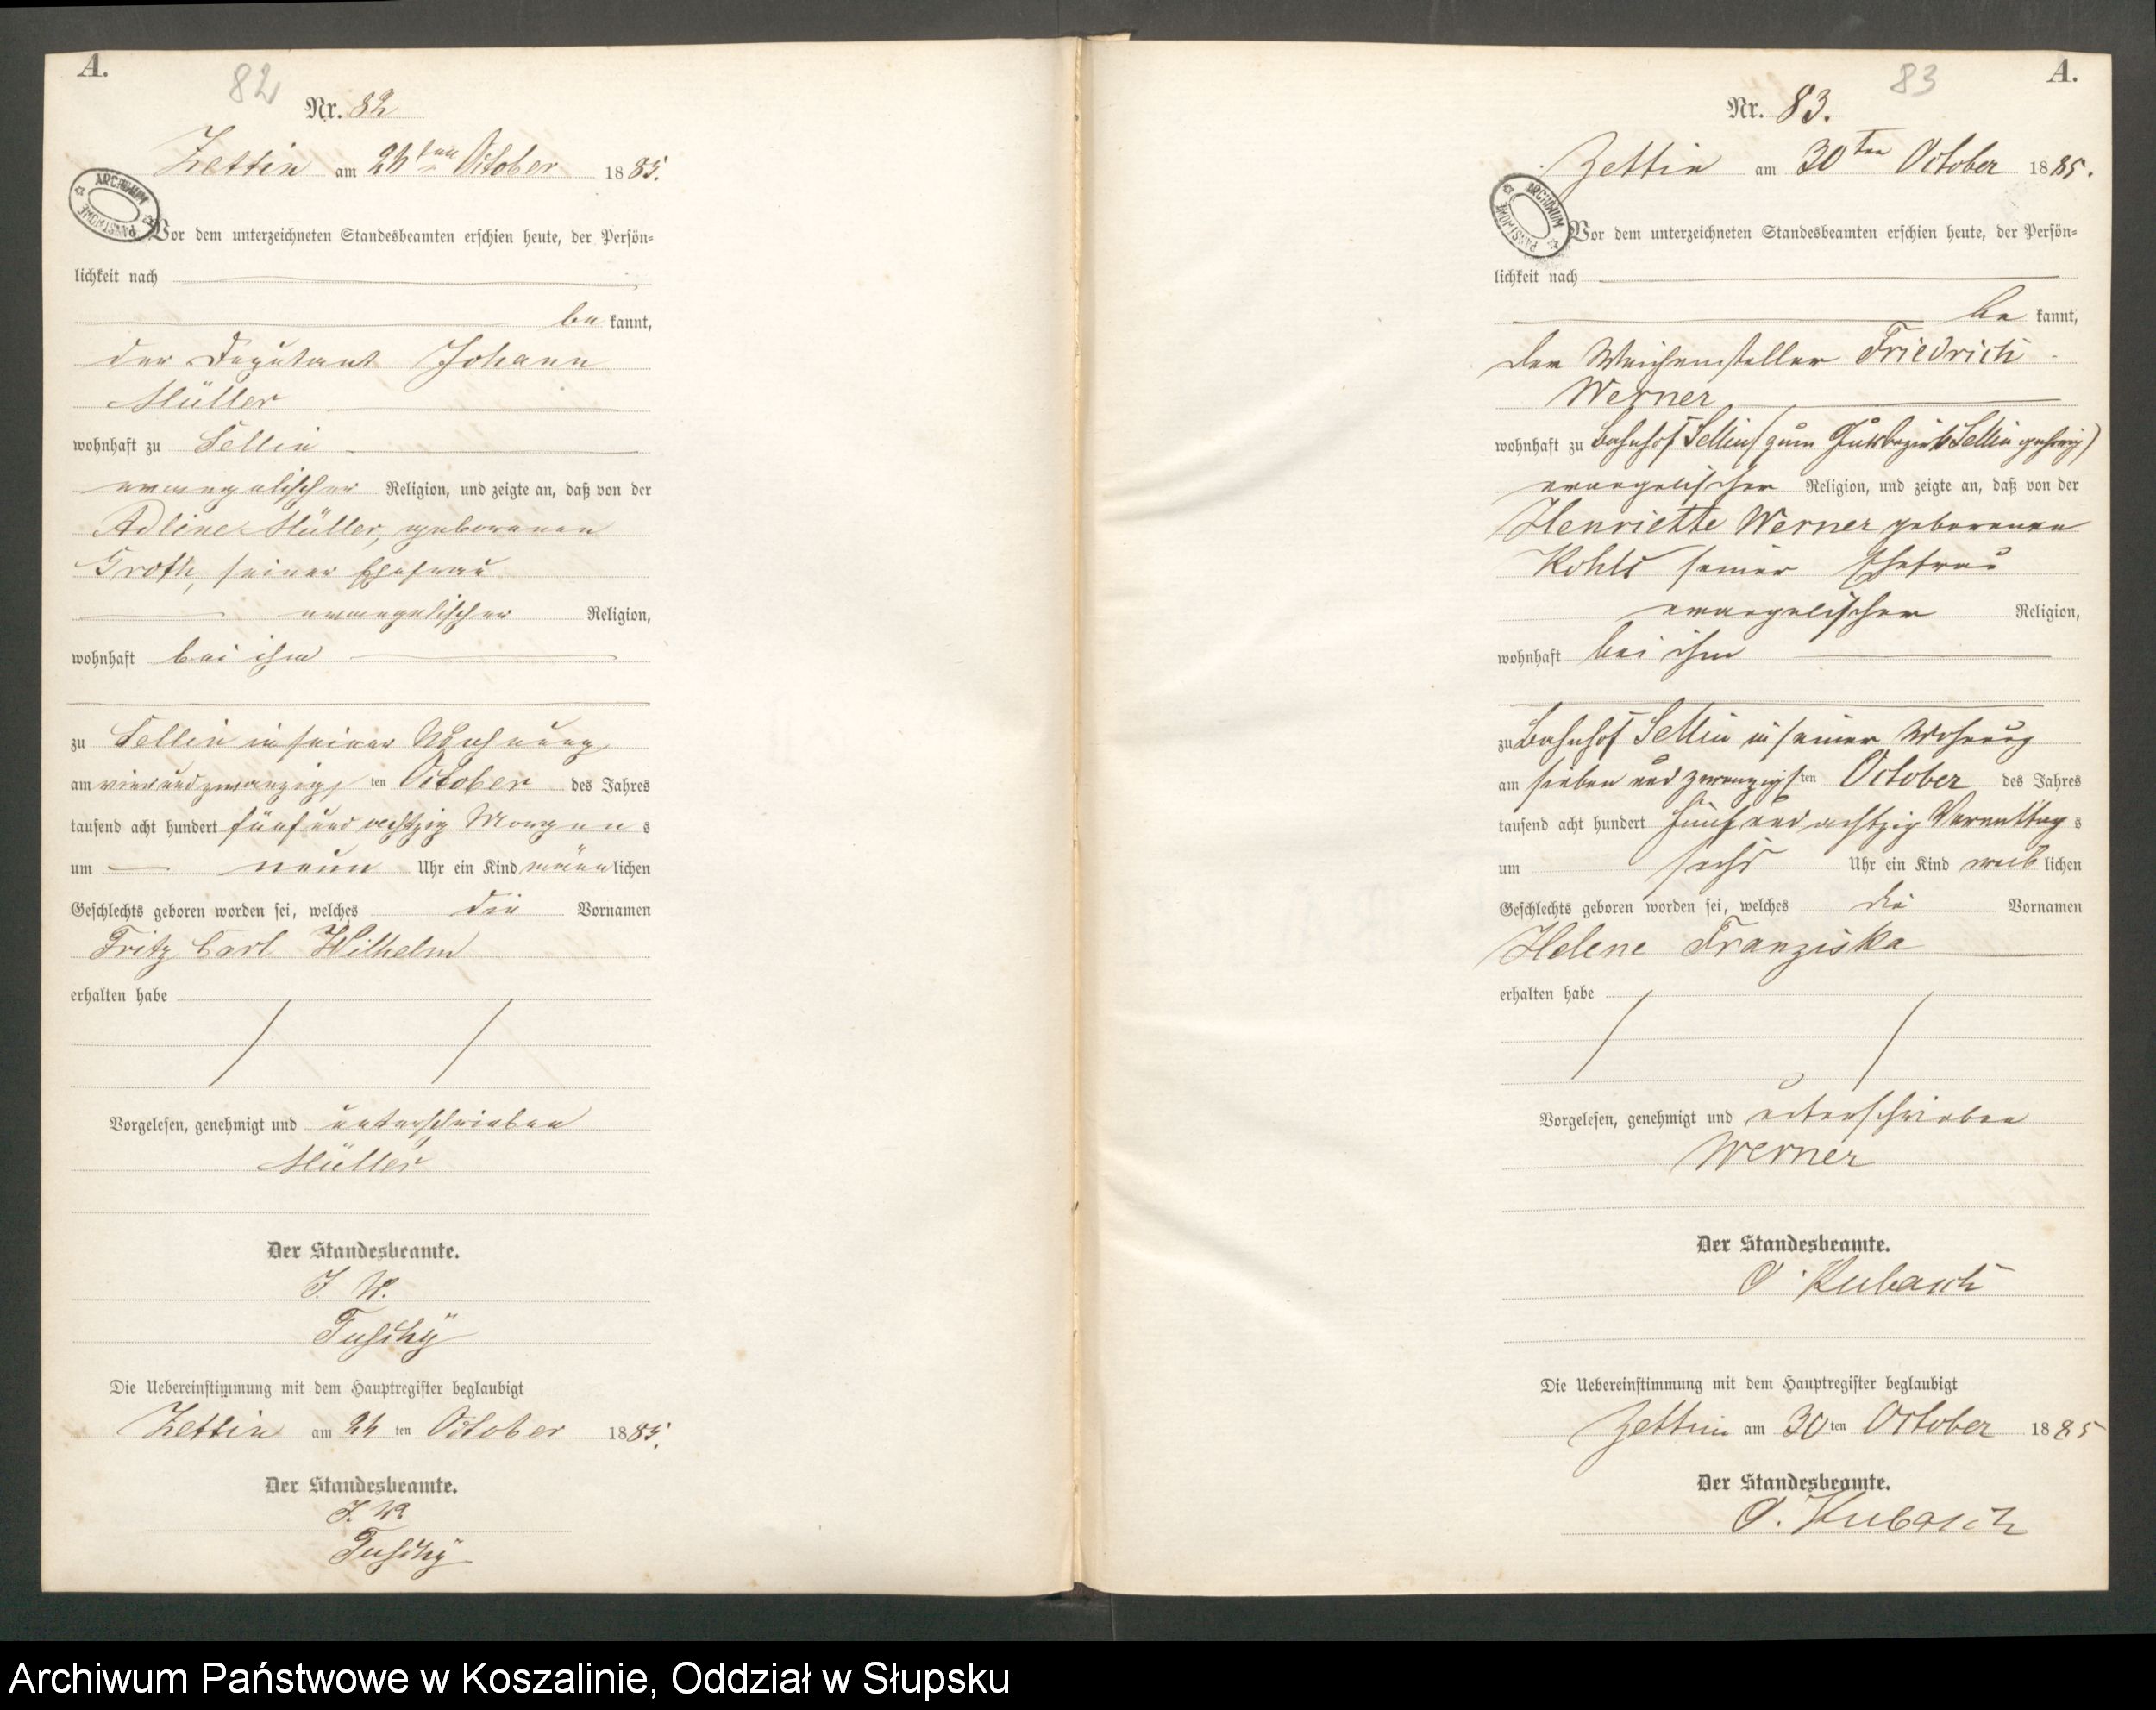 A.
82
Nr. 82
Zettin am 24ten October 1885.
ARCHIWUM PAŃSTWOWE
Vor dem unterzeichneten Standesbeamten erschien heute, der Persön-
lichkeit nach
be kannt,
der Deputant Johann
Müller
wohnhaft zu Sellin
evangelischer Religion, und zeigte an, daß von der
Adline Müller, geborenen
Groth, seiner Ehefrau
evangelischer Religion,
wohnhaft bei ihm
zu Sellin in seiner Wohnung
am vier und zwanzigs ten October des Jahres
tausend acht hundert fünf und achtzig Morgen s
um neun Uhr ein Kind männlichen
Geschlechts geboren worden sei, welches die Vornamen
Fritz Carl Wilhelm
erhalten habe
Vorgelesen, genehmigt und unterschrieben
Müller
Der Standesbeamte.
J. V.
Die Uebereinstimmung mit dem Hauptregister beglaubigt
Zettin am 24 ten October 1885.
Der Standesbeamte.
J. V.
A.
83
Nr. 83.
Zettin am 30ten October 1885.
ARCHIWUM PAŃSTWOWE
Vor dem unterzeichneten Standesbeamten erschien heute, der Persön-
lichkeit nach
be kannt,
der Weichensteller Friedrich
Werner
wohnhaft zu Bahnhof Sellin (zum Gutsbezirk Sellin gehörig)
evangelischer Religion, und zeigte an, daß von der
Henriette Werner geborenen
Kohls seiner Ehefrau
evangelischer Religion,
wohnhaft bei ihm
zu Bahnhof Sellin in seiner Wohnung
am sieben und zwanzigs ten October des Jahres
tausend acht hundert fünf und achtzig Vormittag s
um sechs Uhr ein Kind weiblichen
Geschlechts geboren worden sei, welches die Vornamen
Helene Franziska
erhalten habe
Vorgelesen, genehmigt und unterschrieben
Werner
Der Standesbeamte.
O. Kubasch
Die Uebereinstimmung mit dem Hauptregister beglaubigt
Zettin am 30 ten October 1885
Der Standesbeamte.
O. Kubasch
Archiwum Państwowe w Koszalinie, Oddział w Słupsku